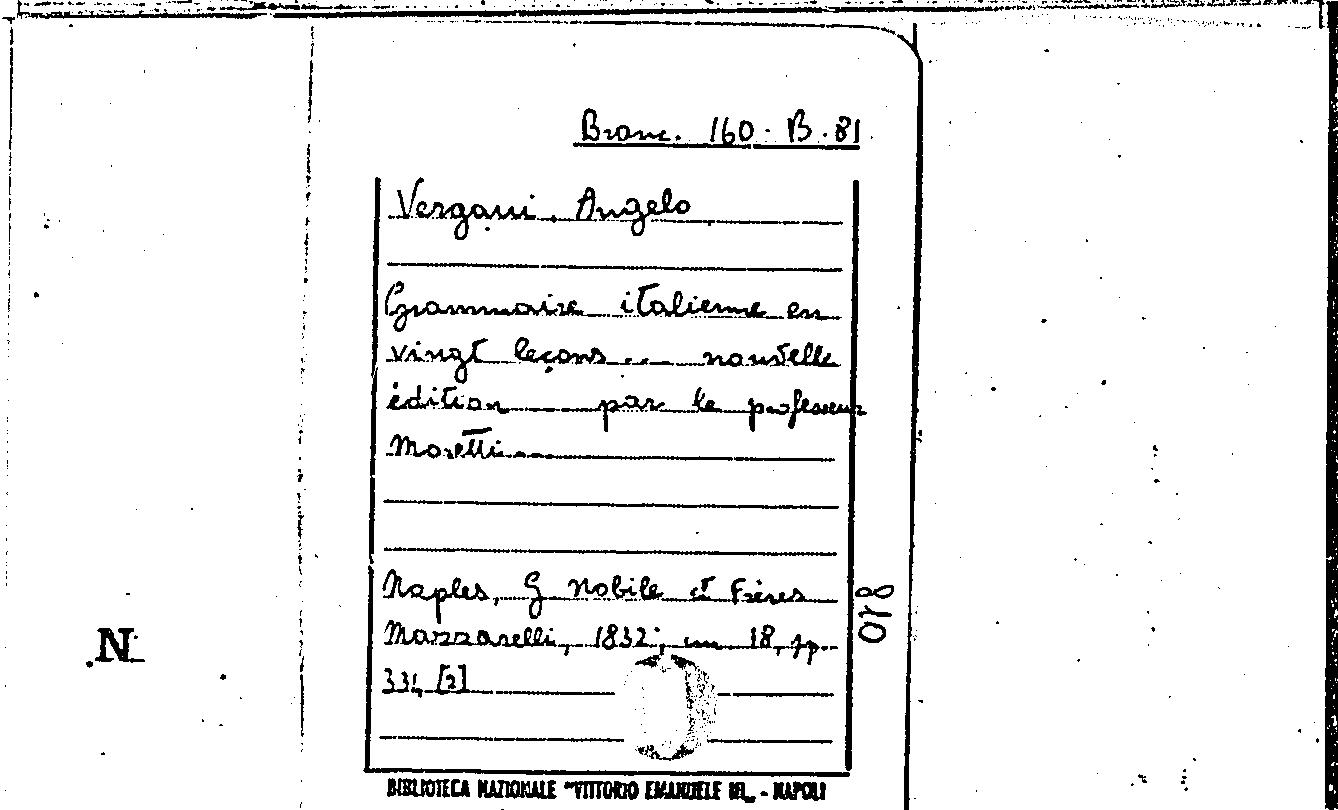 Branc. 160. B. 81
Vergani, Angelo
Grammaire italienne en
vingt leçons ... nouvelle
édition ... par le professeur
Moretti ...
Naples, G Nobile et Frères
Mazzarelli, 1832; in 18, pp.
334 [2]
018
.N.
BIBLIOTECA NAZIONALE "VITTORIO EMANUELE III" - NAPOLI